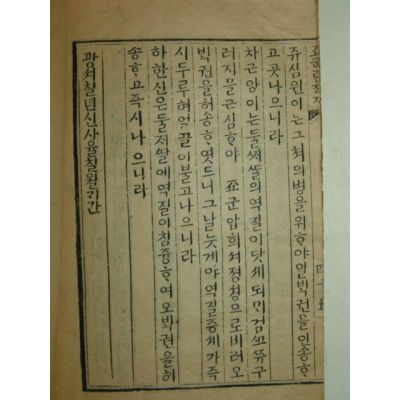 쥬심원이는그쳐의병을위ᄒᆞ야일ᄇᆡᆨ권을인송ᄒᆞ
고곳나으니라
차근양이는둘ᄶᆡᄯᅡᆯ의역질이닷ᄉᆡ되ᄆᆡ검
러지믈근심ᄒᆞ야 죠군압희셔졍셩으로비러오
ᄇᆡᆨ권을허송ᄒᆞ엿드니그날늣게야역질증셰가즉
시두루혀얼골이불고나으니라
하한신은둘ᄌᆡᄯᅡᆯ에역질이침즁ᄒᆞ여오ᄇᆡᆨ권을허
송ᄒᆞ고즉시나으니라
광셔칠년신사윤칠월긔간